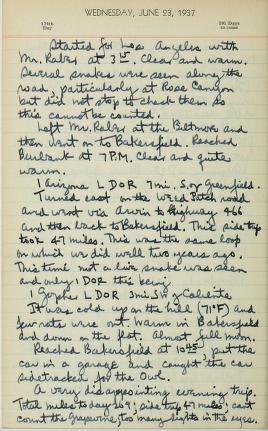 WEDNESDAY, JUNE 23, 1937
174th Day
191 Days to come
Started for Los Angeles with
Mr. Raber at 3 15. Clear and warm.
Several snakes were seen along the
road, particularly at Rose Canyon
but did not stop to check them so
this cannot be counted.
Left Mr. Raber at the Biltmore and
then went on to Bakersfield. Reached
Burbank at 7 P.M. Clear and quite
warm.
1 Arizona L DOR 7 mi. S. of Greenfield.
Turned east on the Weed Patch road
and went via Arvin to Highway 466
and then back to Bakersfield. This side trip
took 47 miles. This was the same loop
on which we did well two years ago.
This time not a live snake was seen
and only 1 DOR this being
1 Gopher L DOR 3 mi. SW of Caliente
It was cold up on the hill (71°F) and
few rats were out. Warm in Bakersfield
and down on the flat. Almost full moon.
Reached Bakersfield at 10 45, put the
car in a garage and caught the car
sidetracked for the Owl.
A very disappointing evening trip.
Total miles today 309; side trip 47 miles; can't
count the Grapevine; too many lights in the eyes.